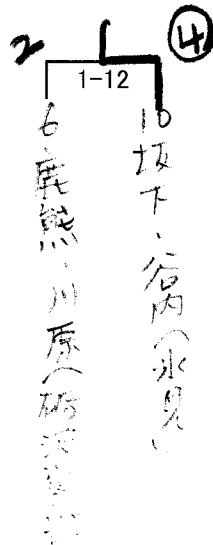 2
④
1-12
10 坂下・谷内(氷見)
6 鹿熊・川原(砺波